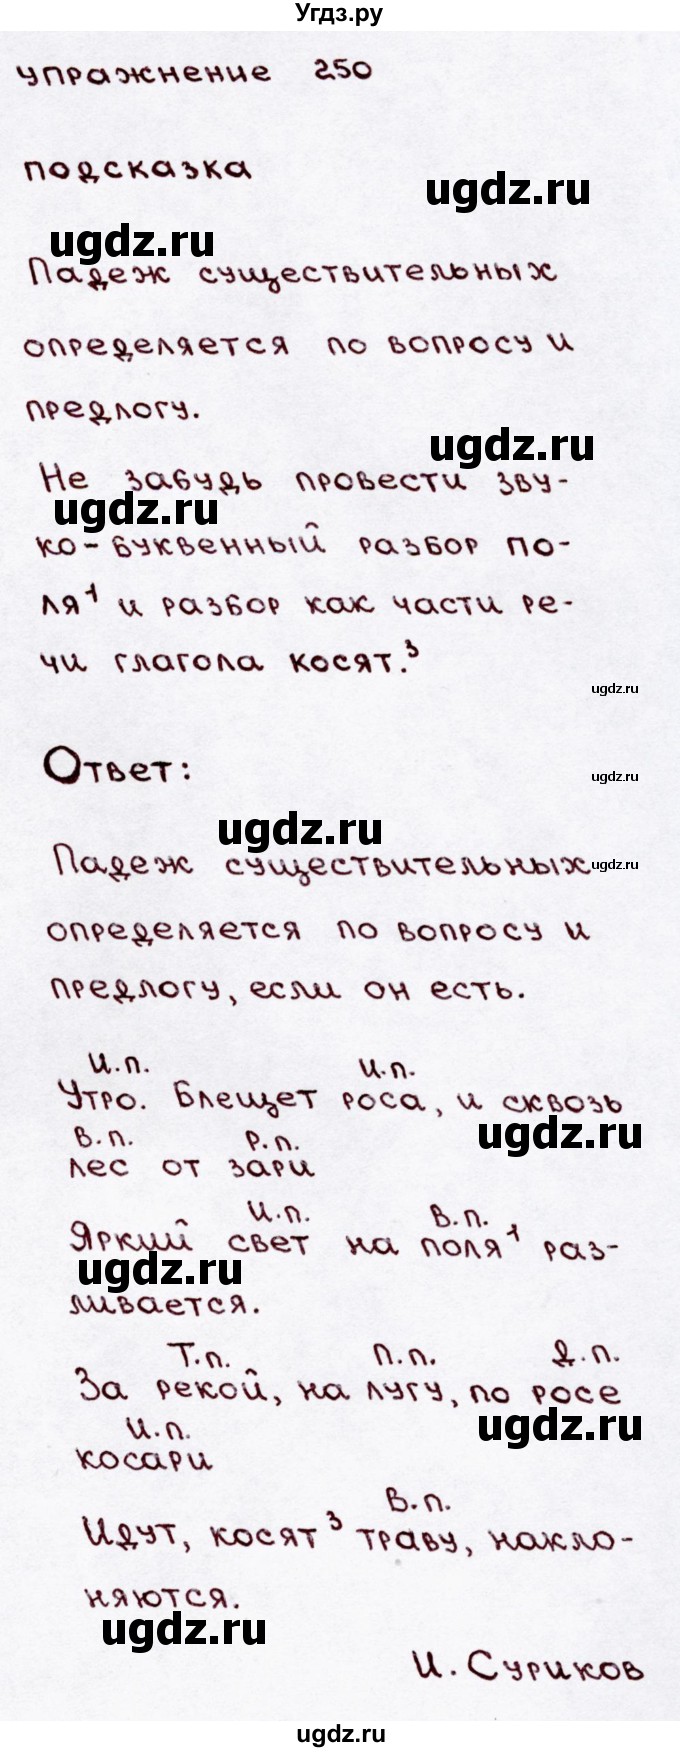 Угдз.ру
упражнение 250
подсказка
ugdz.ru
ugdz.ru
Падеж существительных
определяется по вопросу и
предлогу.
ugdz.ru
Не забудь провести зву-
ugdz.ru
ко-буквенный разбор по-
ля¹ и разбор как части ре-
чи глагола косят.³
ugdz.ru
Ответ:
ugdz.ru
ugdz.ru
Падеж существительных
ugdz.ru
определяется по вопросу и
предлогу, если он есть.
И.п. И.п.
Утро. Блещет роса, и сквозь
ugdz.ru
В.п. Р.п.
лес от зари
И.п. В.п.
Яркий свет на поля¹ раз-
ugdz.ru
ливается.
Т.п. П.п. Д.п.
За рекой, на лугу, по росе
ugdz.ru
И.п.
косари
В.п.
Идут, косят³ траву, накло-
няются.
ugdz.ru
И. Суриков
ugdz.ru